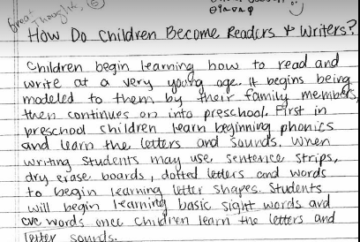 Great Thoughts
How Do Children Become Readers & Writers?
Children begin learning how to read and
write at a very young age. It begins being
modeled to them by their family members,
then continues on into preschool. First in
preschool children learn beginning phonics
and learn the letters and sounds. When
writing students may use sentence strips,
dry erase boards, dotted letters and words
to begin learning letter shapes. Students
will begin learning basic sight words and
cvc words once children learn the letters and
letter sounds.